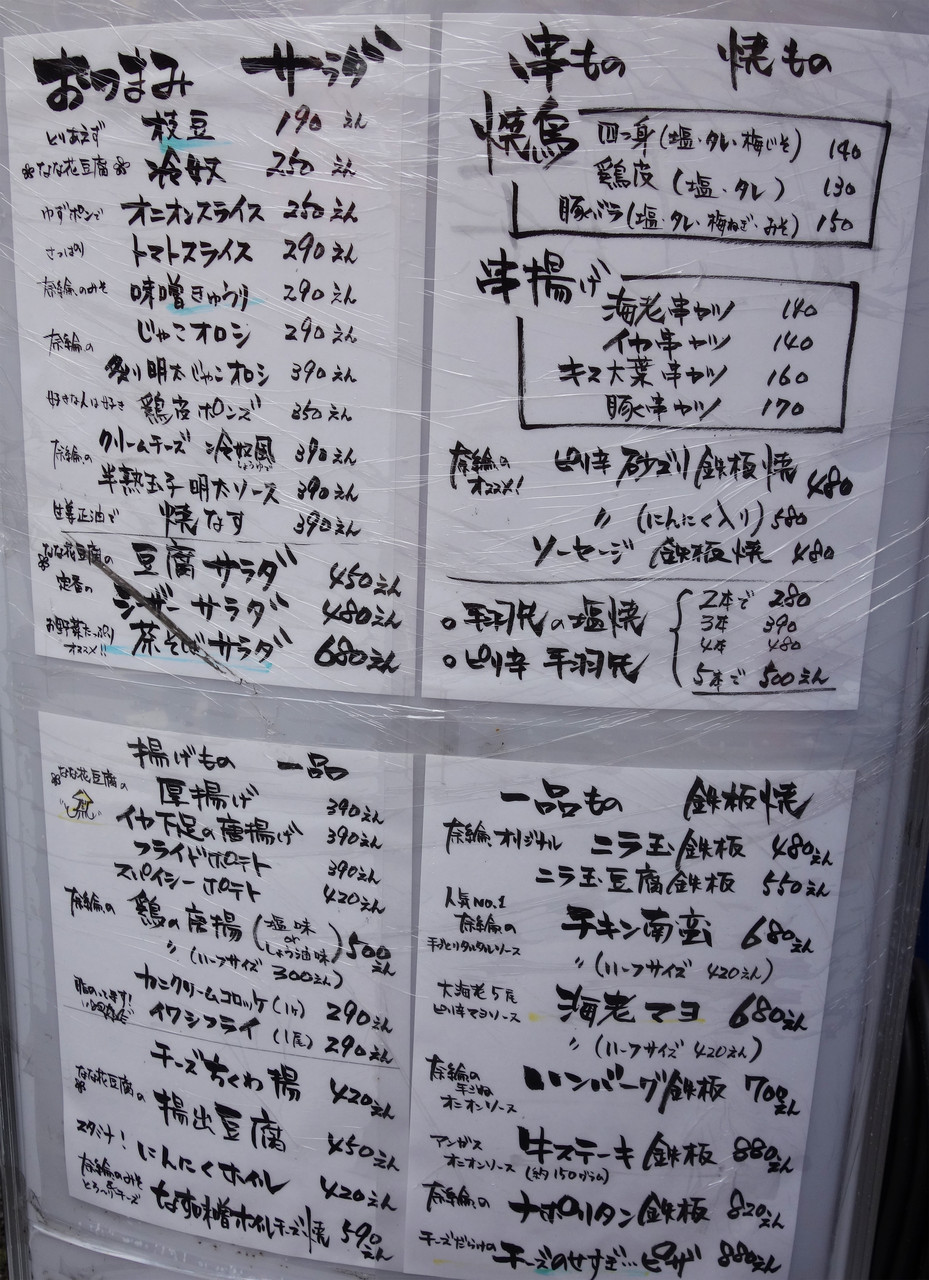 おつまみ サラダ
とりあえず 枝豆 190えん
なな花豆腐 冷奴 250えん
ゆずポンで オニオンスライス 250えん
さっぱり トマトスライス 290えん
奈綸のみそ 味噌きゅうり 290えん
奈綸の じゃこオロシ 290えん
炙り明太じゃこオロシ 390えん
好きな人は好き 鶏皮ポンズ 350えん
奈綸の クリームチーズ 冷奴風 390えん
半熟玉子 明太ソース 390えん
生姜正油で 焼なす 390えん
なな花豆腐の 豆腐サラダ 450えん
定番の シーザーサラダ 480えん
お野菜たっぷり オススメ!! 茶そばサラダ 680えん
串もの 焼もの
焼鳥
四つ身(塩・タレ・梅じそ) 140
鶏皮(塩・タレ) 130
豚バラ(塩・タレ・梅ねぎ・みそ) 150
串揚げ
海老串カツ 140
イカ串カツ 140
キス大葉串カツ 160
豚く串カツ 170
奈綸の オススメ! ピリ辛 砂ゴリ鉄板焼 480
〃 (にんにく入り) 580
ソーセージ 鉄板焼 480
○手羽先の塩焼
○ピリ辛 手羽先
2本で 280
3本 390
4本 480
5本で 500えん
揚げもの 一品
なな花豆腐の 厚揚げ 390えん
イカ下足の唐揚げ 390えん
フライドポテト 390えん
スパイシーポテト 420えん
奈綸の 鶏の唐揚(塩味 or しょう油味) 500えん
〃 (ハーフサイズ 300えん)
カニクリームコロッケ(1ヶ) 290えん
イワシフライ(1尾) 290えん
チーズちくわ揚 420えん
なな花豆腐の 揚出豆腐 450えん
スタミナ! にんにくホイル 420えん
奈綸のみそ とろ〜りチーズ なす味噌ホイルチーズ焼 590えん
一品もの 鉄板焼
奈綸オリジナル ニラ玉鉄板 480えん
ニラ玉豆腐鉄板 550えん
人気NO.1 奈綸の 手づくりタルタルソース チキン南蛮 680えん
〃 (ハーフサイズ 420えん)
大海老5尾 ピリ辛マヨソース 海老マヨ 680えん
〃 (ハーフサイズ 420えん)
奈綸の 手ごね オニオンソース ハンバーグ鉄板 700えん
アンガス オニオンソース 牛ステーキ鉄板 880えん
(約150グラム)
奈綸の ナポリタン鉄板 820えん
チーズだらけの チーズのせすぎ…ピザ 880えん